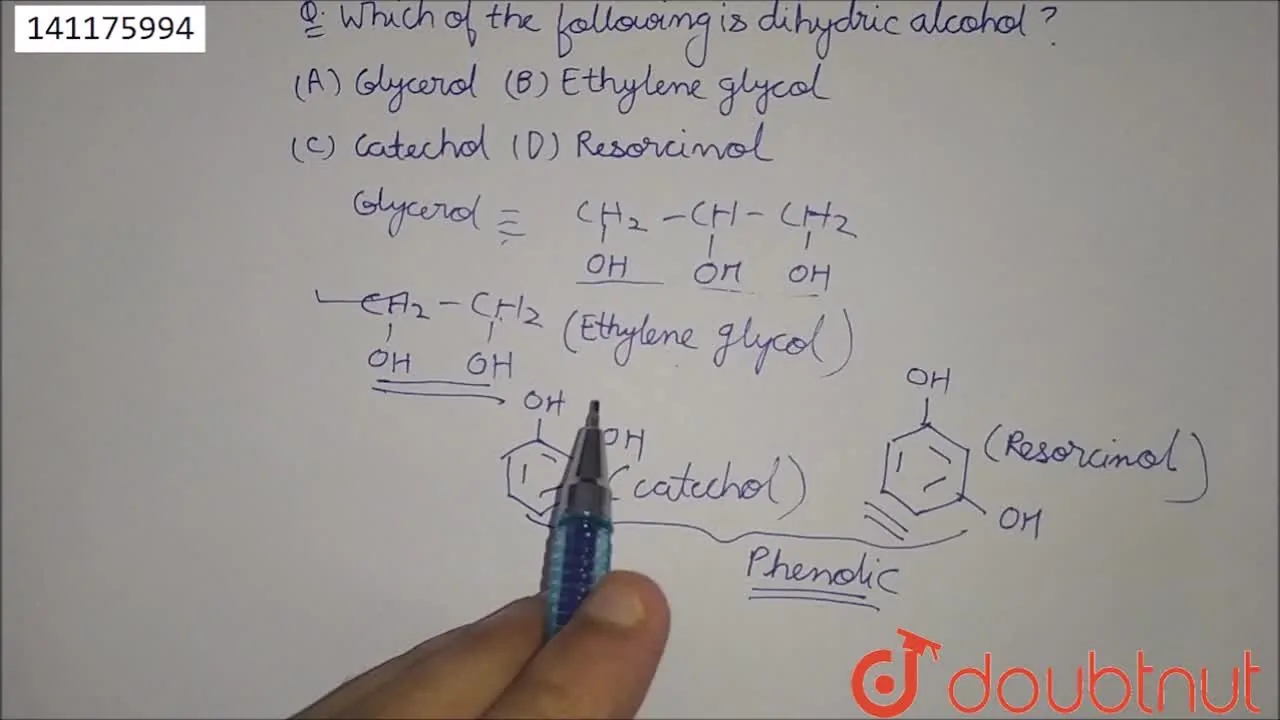 141175994
Q. Which of the following is dihydric alcohol?
(A) Glycerol (B) Ethylene glycol
(C) Catechol (D) Resorcinol
Glycerol ≡ CH2 - CH - CH2
OH OH OH
CH2 - CH2 (Ethylene glycol)
OH OH
OH
OH (catechol)
OH
(Resorcinol)
OH
Phenolic
doubtnut